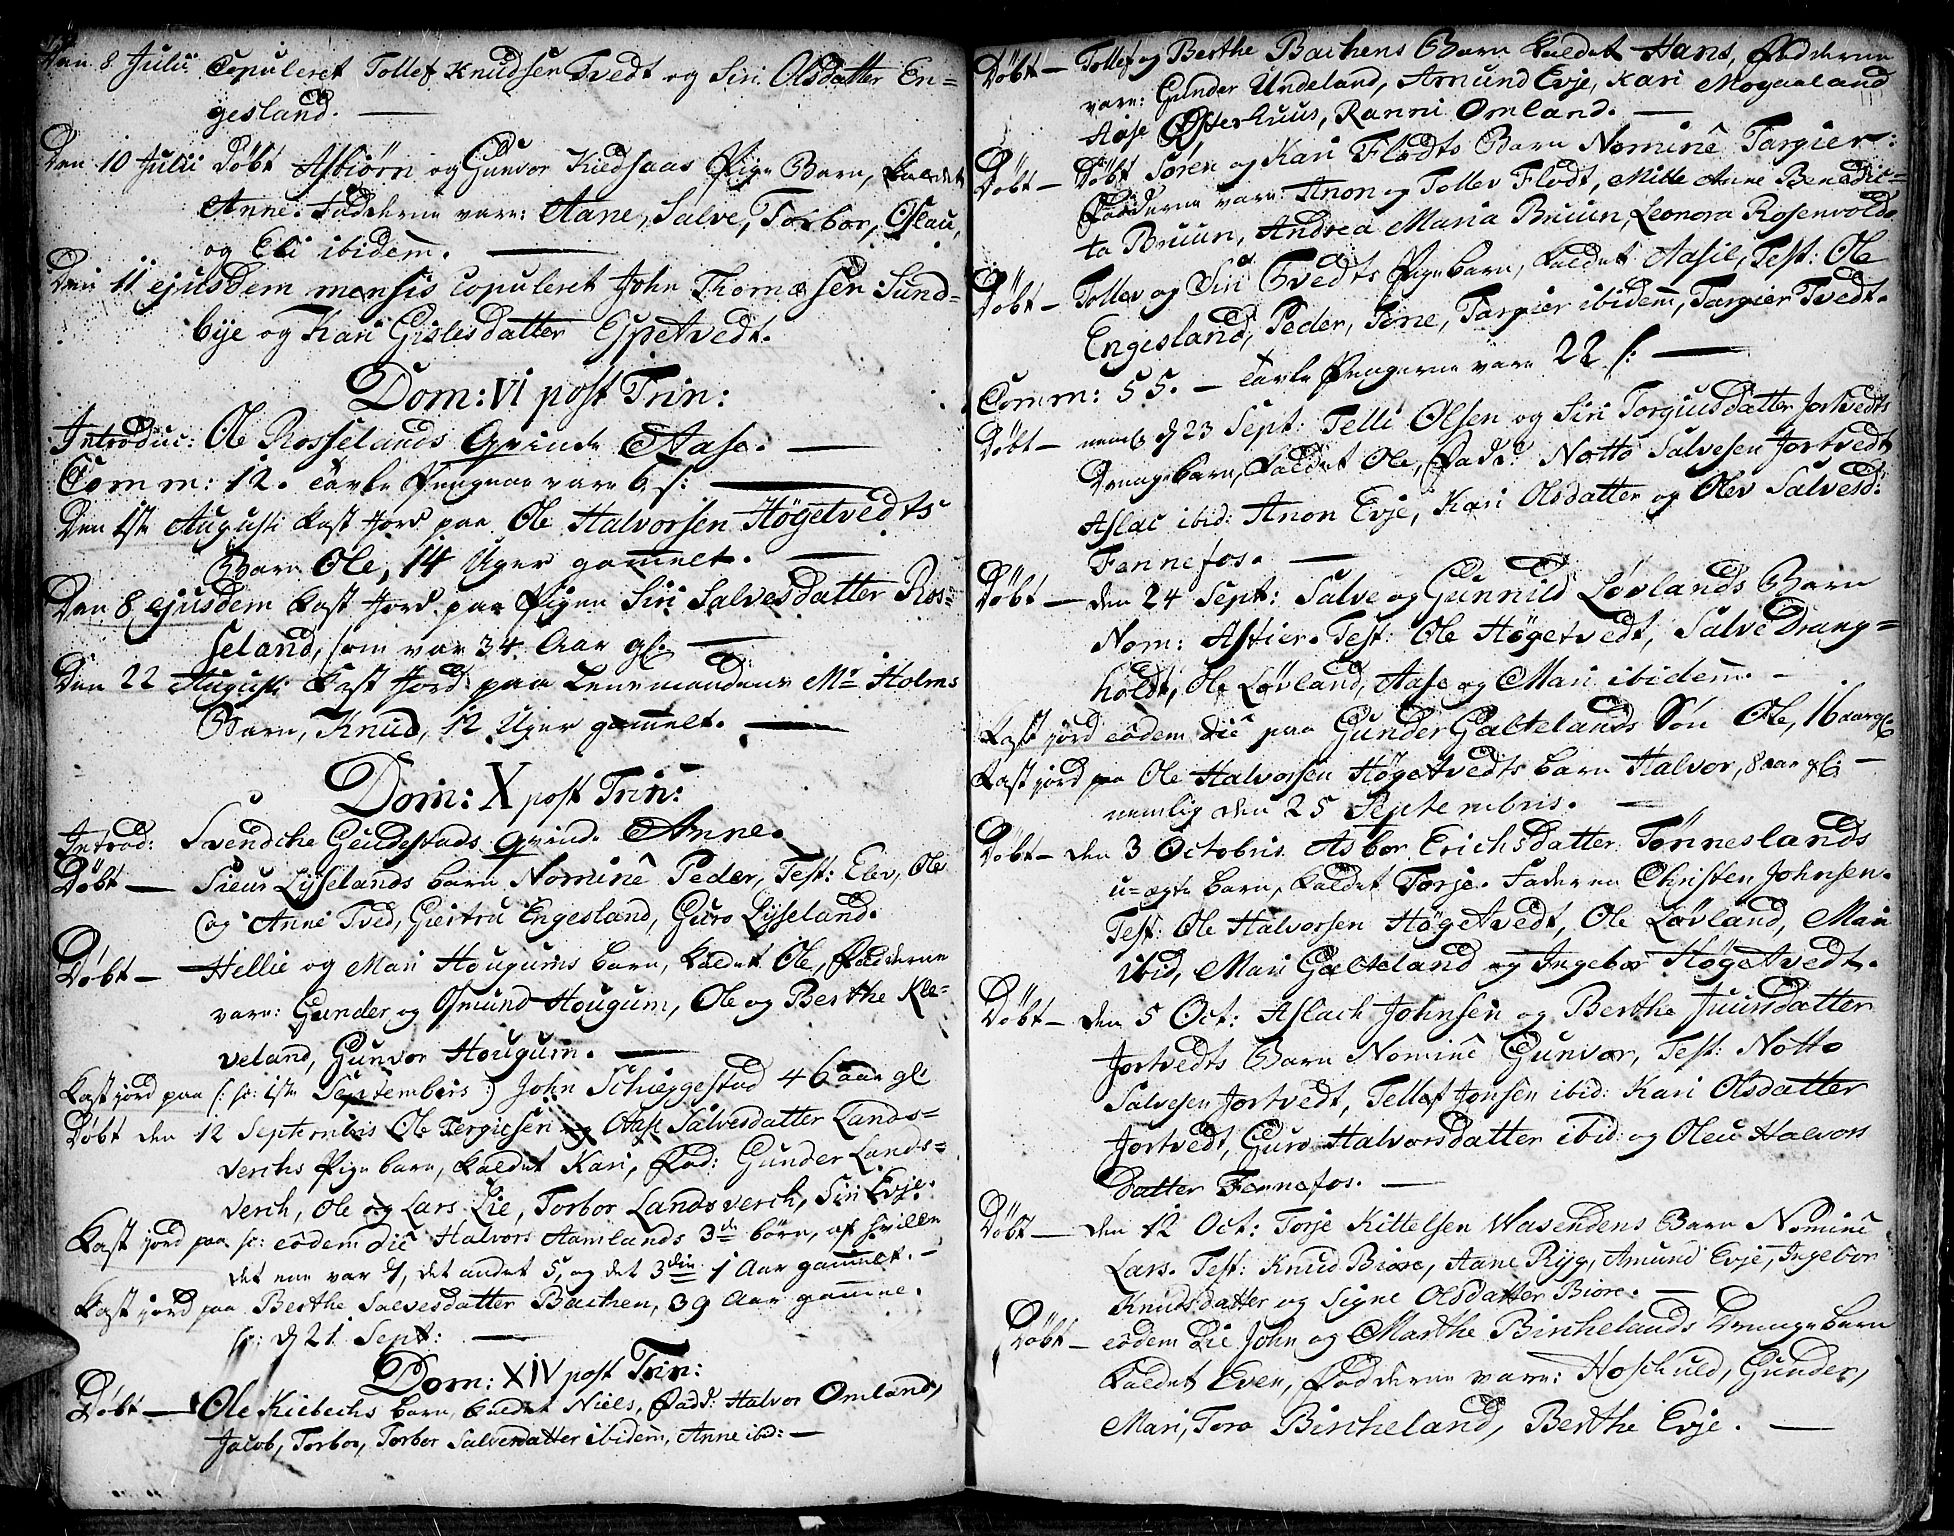 Den 8 Julii Copuleret Tollef Knudsen Tvedt og Siri Olsdatter En=
gesland. —
Den 10 Julii Döbt Asbiørn og Gunvor Kiedsaas Pige Barn, kaldet
Anne. Fadderne vare: Aane, Salve, Torbor, Oslau,
og Eli ibidem. —
Den 11 ejusdem mensis Copuleret John Thomæsen Sund=
bye og Kari Gislesdatter Espetvedt.
Dom: VI post Trin:
Introduc: Ole Rosselands Qvinde Aase. —
Comm: 12. Tavle Pengene vare 6 s: —
Den 1ste Augusti Kast Jord paa Ole Halvorsen Högetvedts
Barn Ole, 14 Uger gammelt. —
Den 8 ejusdem Kast Jord paa Pigen Siri Salvesdatter Ros=
seland, som var 34 Aar gl. —
Den 22 Augusti Kast Jord paa Lensmandens Mr Holms
Barn, Knud, 12 Uger gammelt. —
Dom: X post Trin:
Introd: Svendche Geidestads Qvinde Anne.
Döbt — Sieur Lysselands barn Nominê Peder, Test: Elev, Ole
og Anne Tved, Giertru Engesland, Guro Lysseland.
Döbt — Hellie og Mari Hougums barn, kaldet Ole, Fadderne
vare: Gunder og Osmund Hougum, Ole og Berthe Kle=
veland, Gunvor Hougum. —
Kast jord paa /: sc: 1ste Septembris :/ John Schieggestad 46 aar gl:
Döbt den 12 Septembris Ole Tergiesen og Aase Salvesdatter Lands=
verchs Pige barn, kaldet Kari, Fad: Gunder Lands=
verch, Ole og Lars Lie, Torbor Landsverch, Siri Evje.
Kast jord paa sc: eôdem diê Halvors Aamlands 3de börn, af hvilke
det ene var 7, det andet 5, og det 3die 1 Aar gammelt. —
Kast jord paa Berthe Salvesdatter Bachen, 39 Aar gamme.
sc: d 21 Sept: —
Dom: XIV post Trin:
Döbt — Ole Kiebechs barn, kaldet Niels, Fadd: Halvor Omland,
Jacob, Torbor, Torbor Salvesdatter ibidem, Anne ibid: —
Döbt — Tollef og Berthe Bachens Barn kaldet Hans, Fadderne
vare: Gunder Undeland, Amund Evje, Kari Mogaaland
Aase Østerhuus, Ranni Omland. —
Döbt — Döbt Sören og Kari Flodts Barn Nominê Targier:
Fadderne vare: Anon og Tollev Flodt, Mille Anne Benedic=
ta Bruun, Andrea Maria Bruun, Leonora Rosenvold.
Döbt — Tollev og Siri Tvedts Pigebarn, kaldet Aasil, Test: Ole
Engesland, Peder, Tone, Targier ibidem, Targier Tvedt.
Comm: 55. — Tavle Pengene vare 22 s: —
Döbt — neml d 23 Sept: Telli Olsen og Siri Torgiusdatter Jortvedts
Drengebarn, kaldet Ole, Fadd: Notto Salvesen Jortvedt
Aslac ibid: Anon Evje, Kari Olsdatter og Olev Salvesd:
Fennefos. —
Döbt — den 24 Sept: Salve og Gunnild Løvlands Barn
Nom: Astier. Test: Ole Högetvedt, Salve Drang=
holdt, Ole Løvland, Aase og Mari ibidem. —
Kast jord eôdem diê paa Gunder Galtelands Sön Ole, 16 aar gl:
Kast jord paa Ole Halvorsen Högetvedts barn Halvor, 8 aar gl: —
nemlig den 25 Septembris. —
Döbt — den 3 Octobris Asbor Erichsdatter Tønneslands
u=ægte barn, kaldet Torje. Faderen Christen Johnsen.
Test: Ole Halvorsen Högetvedt, Ole Løvland, Mari
ibid, Mari Galteland og Ingebor Högetvedt.
Döbt — den 5 Oct: Aslach Johnsen og Berthe Juursdatter
Jortvedts Barn Nominê Gunvor, Test: Notto
Salvesen Jortvedt, Tellef Jonsen ibid: Kari Olsdatter
Jortvedt, Guro Halvorsdatter ibid: og Oleu Halvors
datter Fennefos. —
Döbt — den 12 Oct: Torje Kittelsen Wasendens Barn Nominê
Lars. Test: Knud Biore, Aane Ryg, Amund Evje, Ingebor
Knudsdatter og Signe Olsdatter Biore. —
Döbt — eôdem die John og Marthe Birchelands Drengebarn
kaldet Even, Fadderne vare: Hoschuld, Gunder,
Mari, Tora Bircheland, Berthe Evje. —